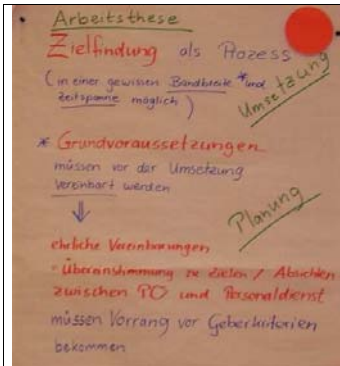 Arbeitsthese
Zielfindung als Prozess
(in einer gewissen Bandbreite * und
Zeitspanne möglich)
Umsetzung
* Grundvoraussetzungen
müssen vor der Umsetzung
vereinbart werden
⇓
Planung
ehrliche Vereinbarungen
- Übereinstimmung zu Zielen / Absichten
zwischen PO und Personaldienst
müssen Vorrang vor Geberkriterien
bekommen